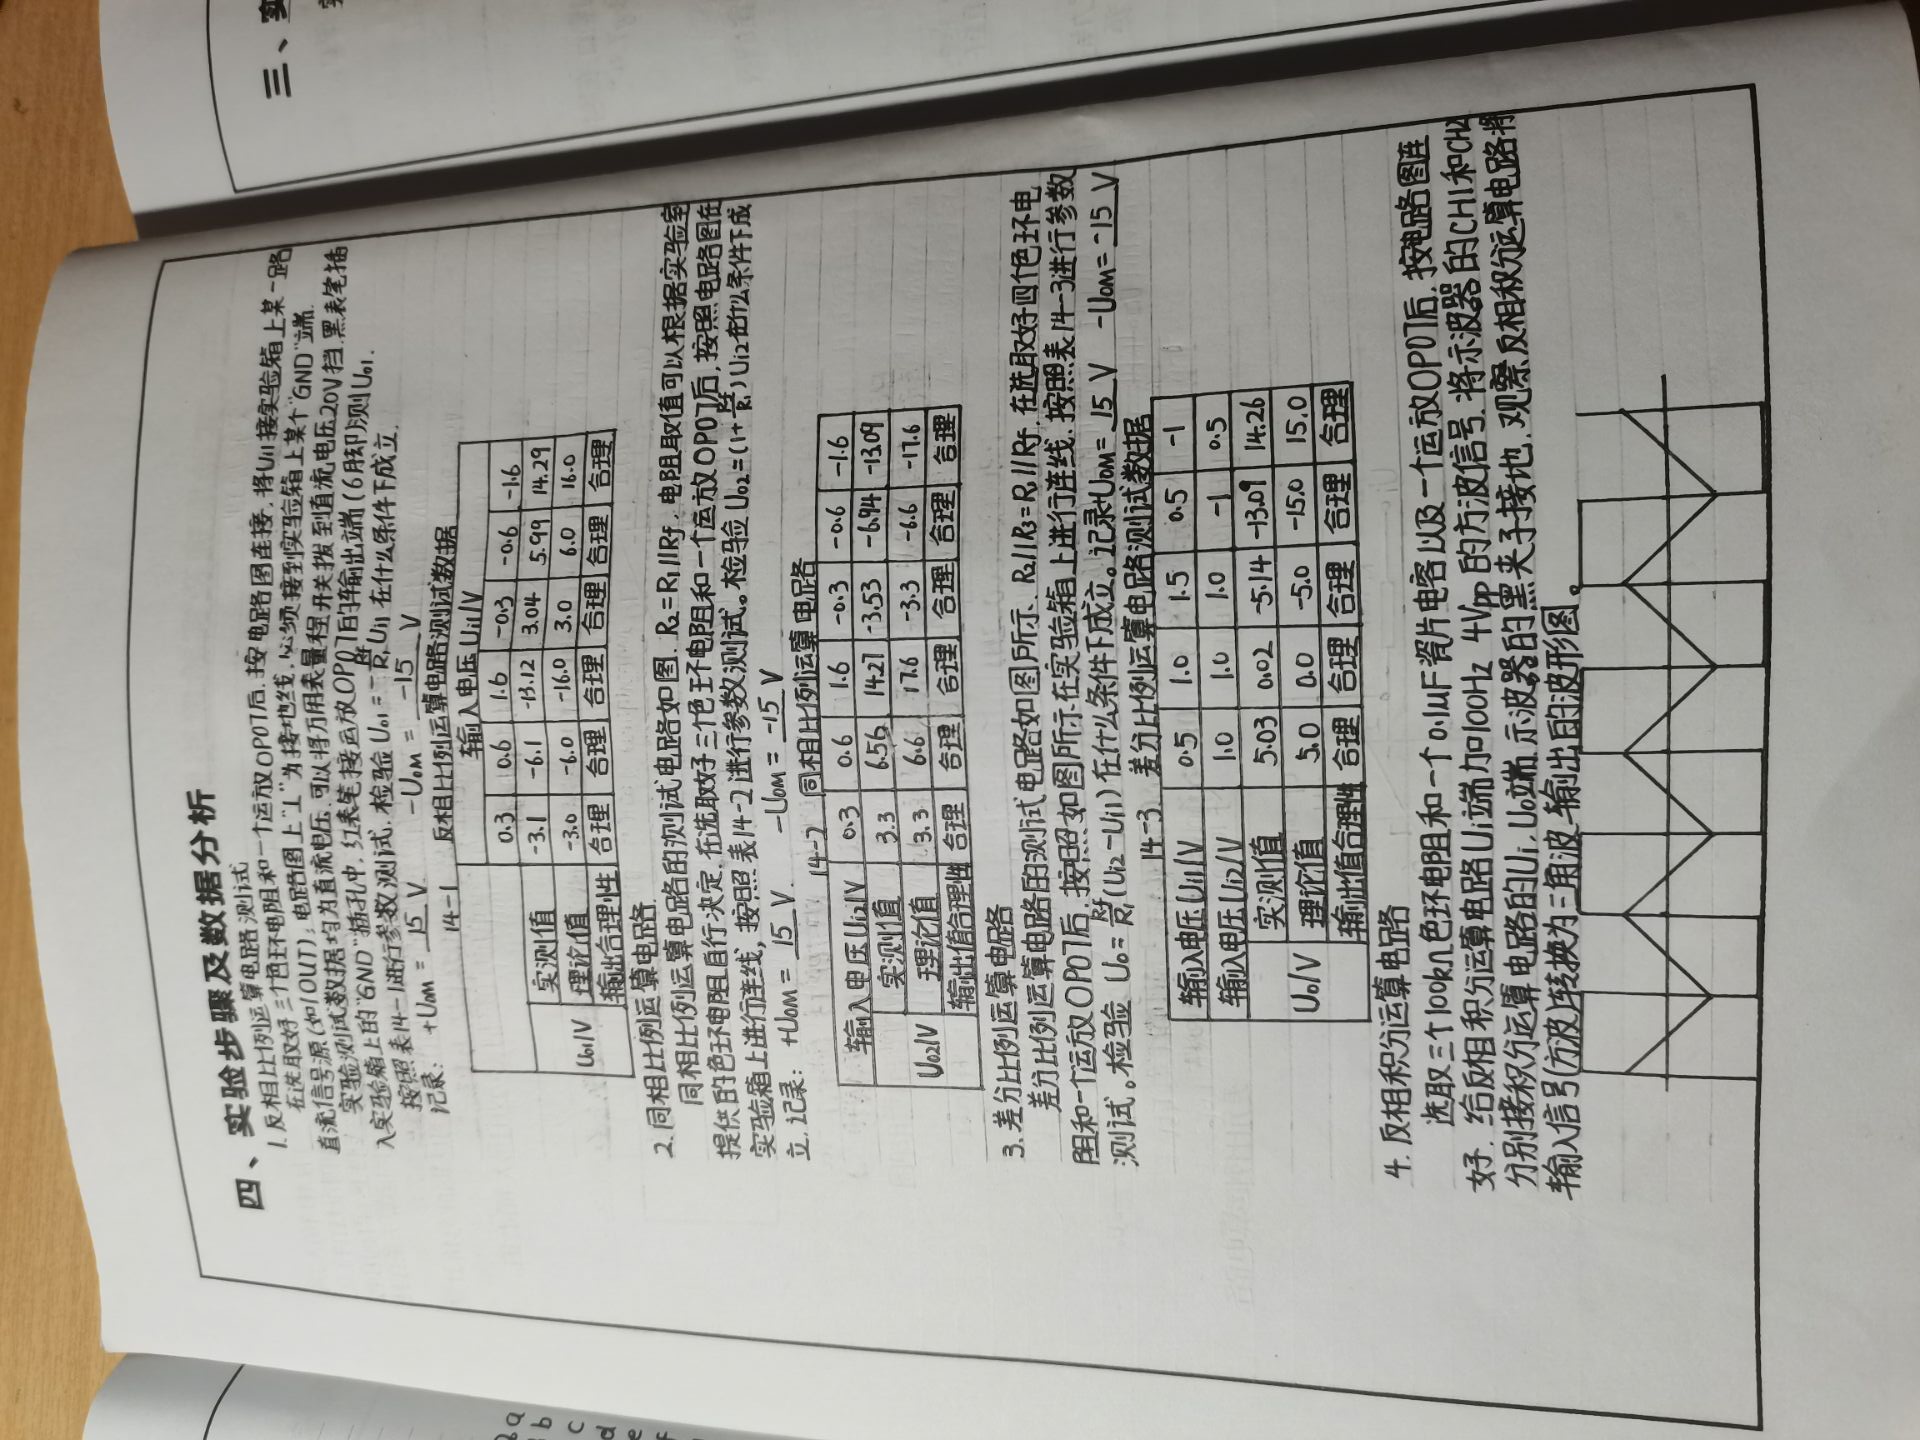 四、实验步骤及数据分析
1.反相比例运算电路测试
在选取好三个色环电阻和一个运放OP07后.按电路图连接.将Ui1接实验箱上某一路
直流信号源(如1OUT);电路图上"⊥"为接地线.必须接到实验箱上某个"GND"端.
实验测试数据均为直流电压.可以将万用表量程开关拨到直流电压20V挡.黑表笔插
入实验箱上的"GND"插孔中.红表笔接运放OP07的输出端(6脚)测Uo1.
按照表14-1进行参数测试.检验Uo1=-Rf/R1 Ui1在什么条件下成立.
记录: +UOM = 15 V. -UOM = -15 V
14-1 反相比例运算电路测试数据
输入电压Ui1/V
0.3 0.6 1.6 -0.3 -0.6 -1.6
实测值 -3.1 -6.1 -13.12 3.04 5.99 14.29
Uo1/V 理论值 -3.0 -6.0 -16.0 3.0 6.0 16.0
输出合理性 合理 合理 合理 合理 合理 合理
2.同相比例运算电路.
同相比例运算电路的测试电路如图.R2=R1//Rf.电阻取值可以根据实验室
提供的色环电阻自行决定.在选取好三个色环电阻和一个运放OP07后,按照电路图在
实验箱上进行连线,按照表14-2进行参数测试。检验Uo2=(1+Rf/R1)Ui2在什么条件下成
立.记录: +UOM = 15 V. -UOM = -15 V
14-2 同相比例运算电路
输入电压Ui2/V 0.3 0.6 1.6 -0.3 -0.6 -1.6
实测值 3.3 6.56 14.27 -3.53 -6.94 -13.09
Uo2/V 理论值 3.3 6.6 17.6 -3.3 -6.6 -17.6
输出值合理性 合理 合理 合理 合理 合理 合理
3.差分比例运算电路
差分比例运算电路的测试电路如图所示.R2//R3=R1//Rf.在选取好四个色环电
阻和一个运放OP07后.按照如图所示在实验箱上进行连线.按照表14-3进行参数
测试。检验 Uo=Rf/R1(Ui2-Ui1)在什么条件下成立。记录+UOM= 15 V -UOM= -15 V
14-3. 差分比例运算电路测试数据
输入电压Ui1/V 0.5 1.0 1.5 0.5 -1
输入电压Ui2/V 1.0 1.0 1.0 -1 0.5
实测值 5.03 0.02 -5.14 -13.09 14.26
Uo/V 理论值 5.0 0.0 -5.0 -15.0 15.0
输出值合理性 合理 合理 合理 合理 合理
4.反相积分运算电路
选取三个100kΩ色环电阻和一个0.1μF瓷片电容以及一个运放OP07后.按电路图连
好.给反相积分运算电路Ui端加100Hz 4Vpp的方波信号.将示波器的CH1和CH2
分别接积分运算电路的Ui.Uo端.示波器的黑夹子接地.观察反相积分运算电路将
输入信号(方波)转换为三角波输出的波形图。
三、实
a
b
c
d
e
f